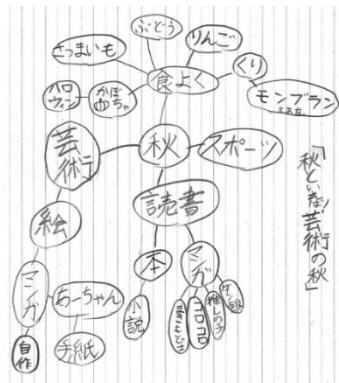 ぶどう
りんご
さつまいも
くり
食よく
モンブラン
ハロウィン
かぼちゃ
芸術
秋
スポーツ
「秋といえば!芸術の秋」
読書
絵
本
マンガ
マンガ
あーちゃん
小説
コロコロ
推しの子
手紙
自作